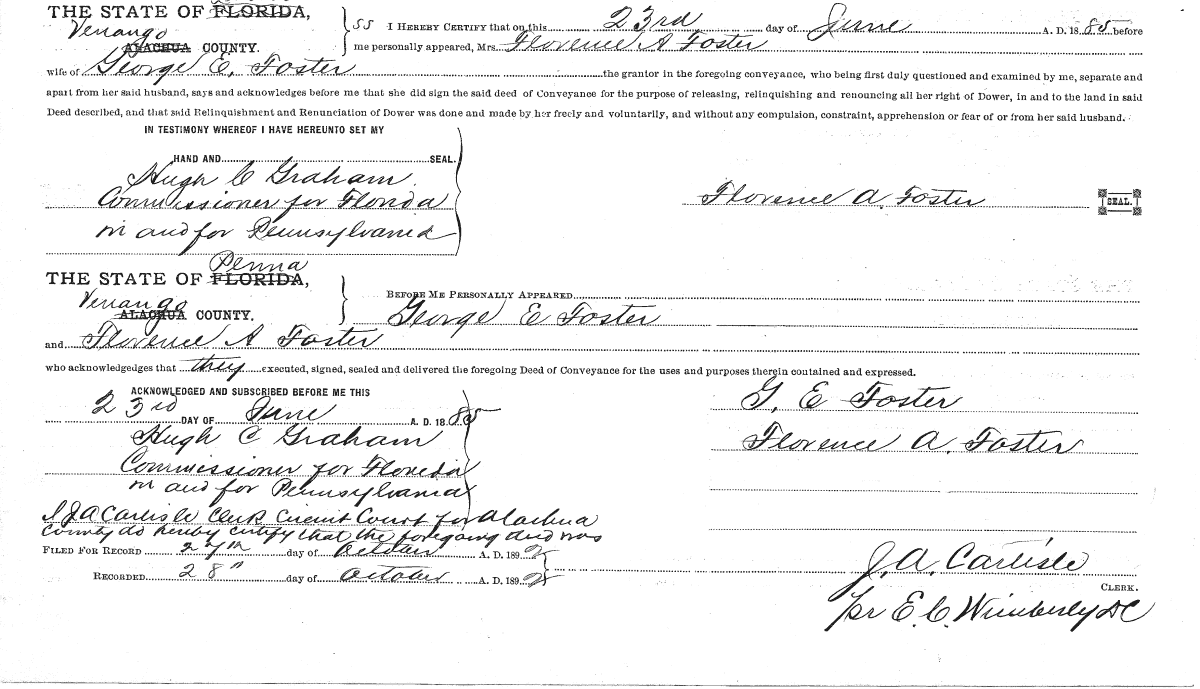 THE STATE OF FLORIDA,
Venango
ALACHUA COUNTY.
SS I HEREBY CERTIFY that on this 23rd day of June A. D. 1885 before
me personally appeared, Mrs. Florence A Foster
wife of George E. Foster the grantor in the foregoing conveyance, who being first duly questioned and examined by me, separate and
apart from her said husband, says and acknowledges before me that she did sign the said deed of Conveyance for the purpose of releasing, relinquishing and renouncing all her right of Dower, in and to the land in said
Deed described, and that said Relinquishment and Renunciation of Dower was done and made by her freely and voluntarily, and without any compulsion, constraint, apprehension or fear of or from her said husband.
IN TESTIMONY WHEREOF I HAVE HEREUNTO SET MY
HAND AND SEAL.
Hugh C Graham
Commissioner for Florida
in and for Pennsylvania
Florence A. Foster SEAL.
Penna
THE STATE OF FLORIDA,
Venango
ALACHUA COUNTY.
BEFORE ME PERSONALLY APPEARED
George E Foster
and Florence A Foster
who acknowledgedges that they executed, signed, sealed and delivered the foregoing Deed of Conveyance for the uses and purposes therein contained and expressed.
ACKNOWLEDGED AND SUBSCRIBED BEFORE ME THIS
23rd DAY OF June A. D. 1885
Hugh C Graham
Commissioner for Florida
in and for Pennsylvania
G. E Foster
Florence A. Foster
I J A Carlisle Clerk Circuit Court for Alachua
County do hereby certify that the foregoing deed was
FILED FOR RECORD 27th day of October A. D. 1892
RECORDED 28" day of October A. D. 1892
J. A. Carlisle
CLERK.
per E. C. Wimberly DC